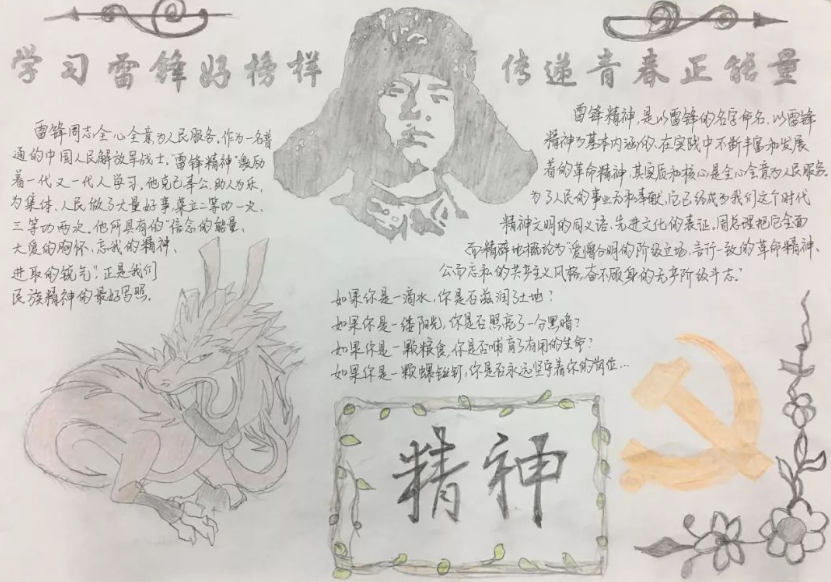 学习雷锋好榜样
传递青春正能量
雷锋同志全心全意为人民服务。作为一名普
通的中国人民解放军战士,"雷锋精神"激励
着一代又一代人学习。他克己奉公,助人为乐,
为集体、人民做了大量好事,荣立二等功一次、
三等功两次。他所具有的"信念的能量、
大爱的胸怀、忘我的精神、
进取的锐气",正是我们
民族精神的最好写照。
雷锋精神,是以雷锋的名字命名,以雷锋
精神为基本内涵的、在实践中不断丰富和发展
着的革命精神,其实质和核心是全心全意为人民服务,
为了人民的事业无私奉献。它已经成为我们这个时代
精神文明的同义语、先进文化的表征。周总理把它全面
而精辟地概论为"爱憎分明的阶级立场、言行一致的革命精神、
公而忘私的共产主义风格、奋不顾身的无产阶级斗志。"
如果你是一滴水,你是否滋润了土地?
如果你是一缕阳光,你是否照亮了一分黑暗?
如果你是一颗粮食,你是否哺育了有用的生命?
如果你是一颗螺丝钉,你是否永远坚守着你的岗位...
精神